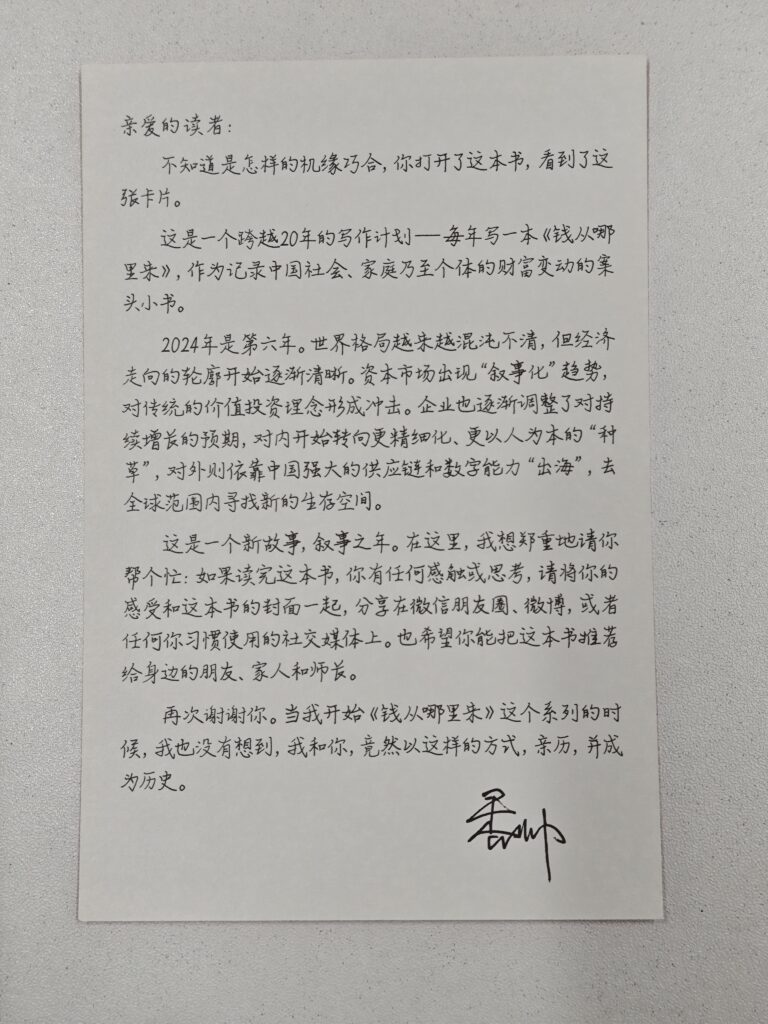 亲爱的读者：
不知道是怎样的机缘巧合，你打开了这本书，看到了这
张卡片。
这是一个跨越20年的写作计划——每年写一本《钱从哪
里来》，作为记录中国社会、家庭乃至个体的财富变动的案
头小书。
2024年是第六年。世界格局越来越混沌不清，但经济
走向的轮廓开始逐渐清晰。资本市场出现“叙事化”趋势，
对传统的价值投资理念形成冲击。企业也逐渐调整了对持
续增长的预期，对内开始转向更精细化、更以人为本的“种
草”，对外则依靠中国强大的供应链和数字能力“出海”，去
全球范围内寻找新的生存空间。
这是一个新故事，叙事之年。在这里，我想郑重地请你
帮个忙：如果读完这本书，你有任何感触或思考，请将你的
感受和这本书的封面一起，分享在微信朋友圈、微博，或者
任何你习惯使用的社交媒体上。也希望你能把这本书推荐
给身边的朋友、家人和师长。
再次谢谢你。当我开始《钱从哪里来》这个系列的时
候，我也没有想到，我和你，竟然以这样的方式，亲历，并成
为历史。
香帅